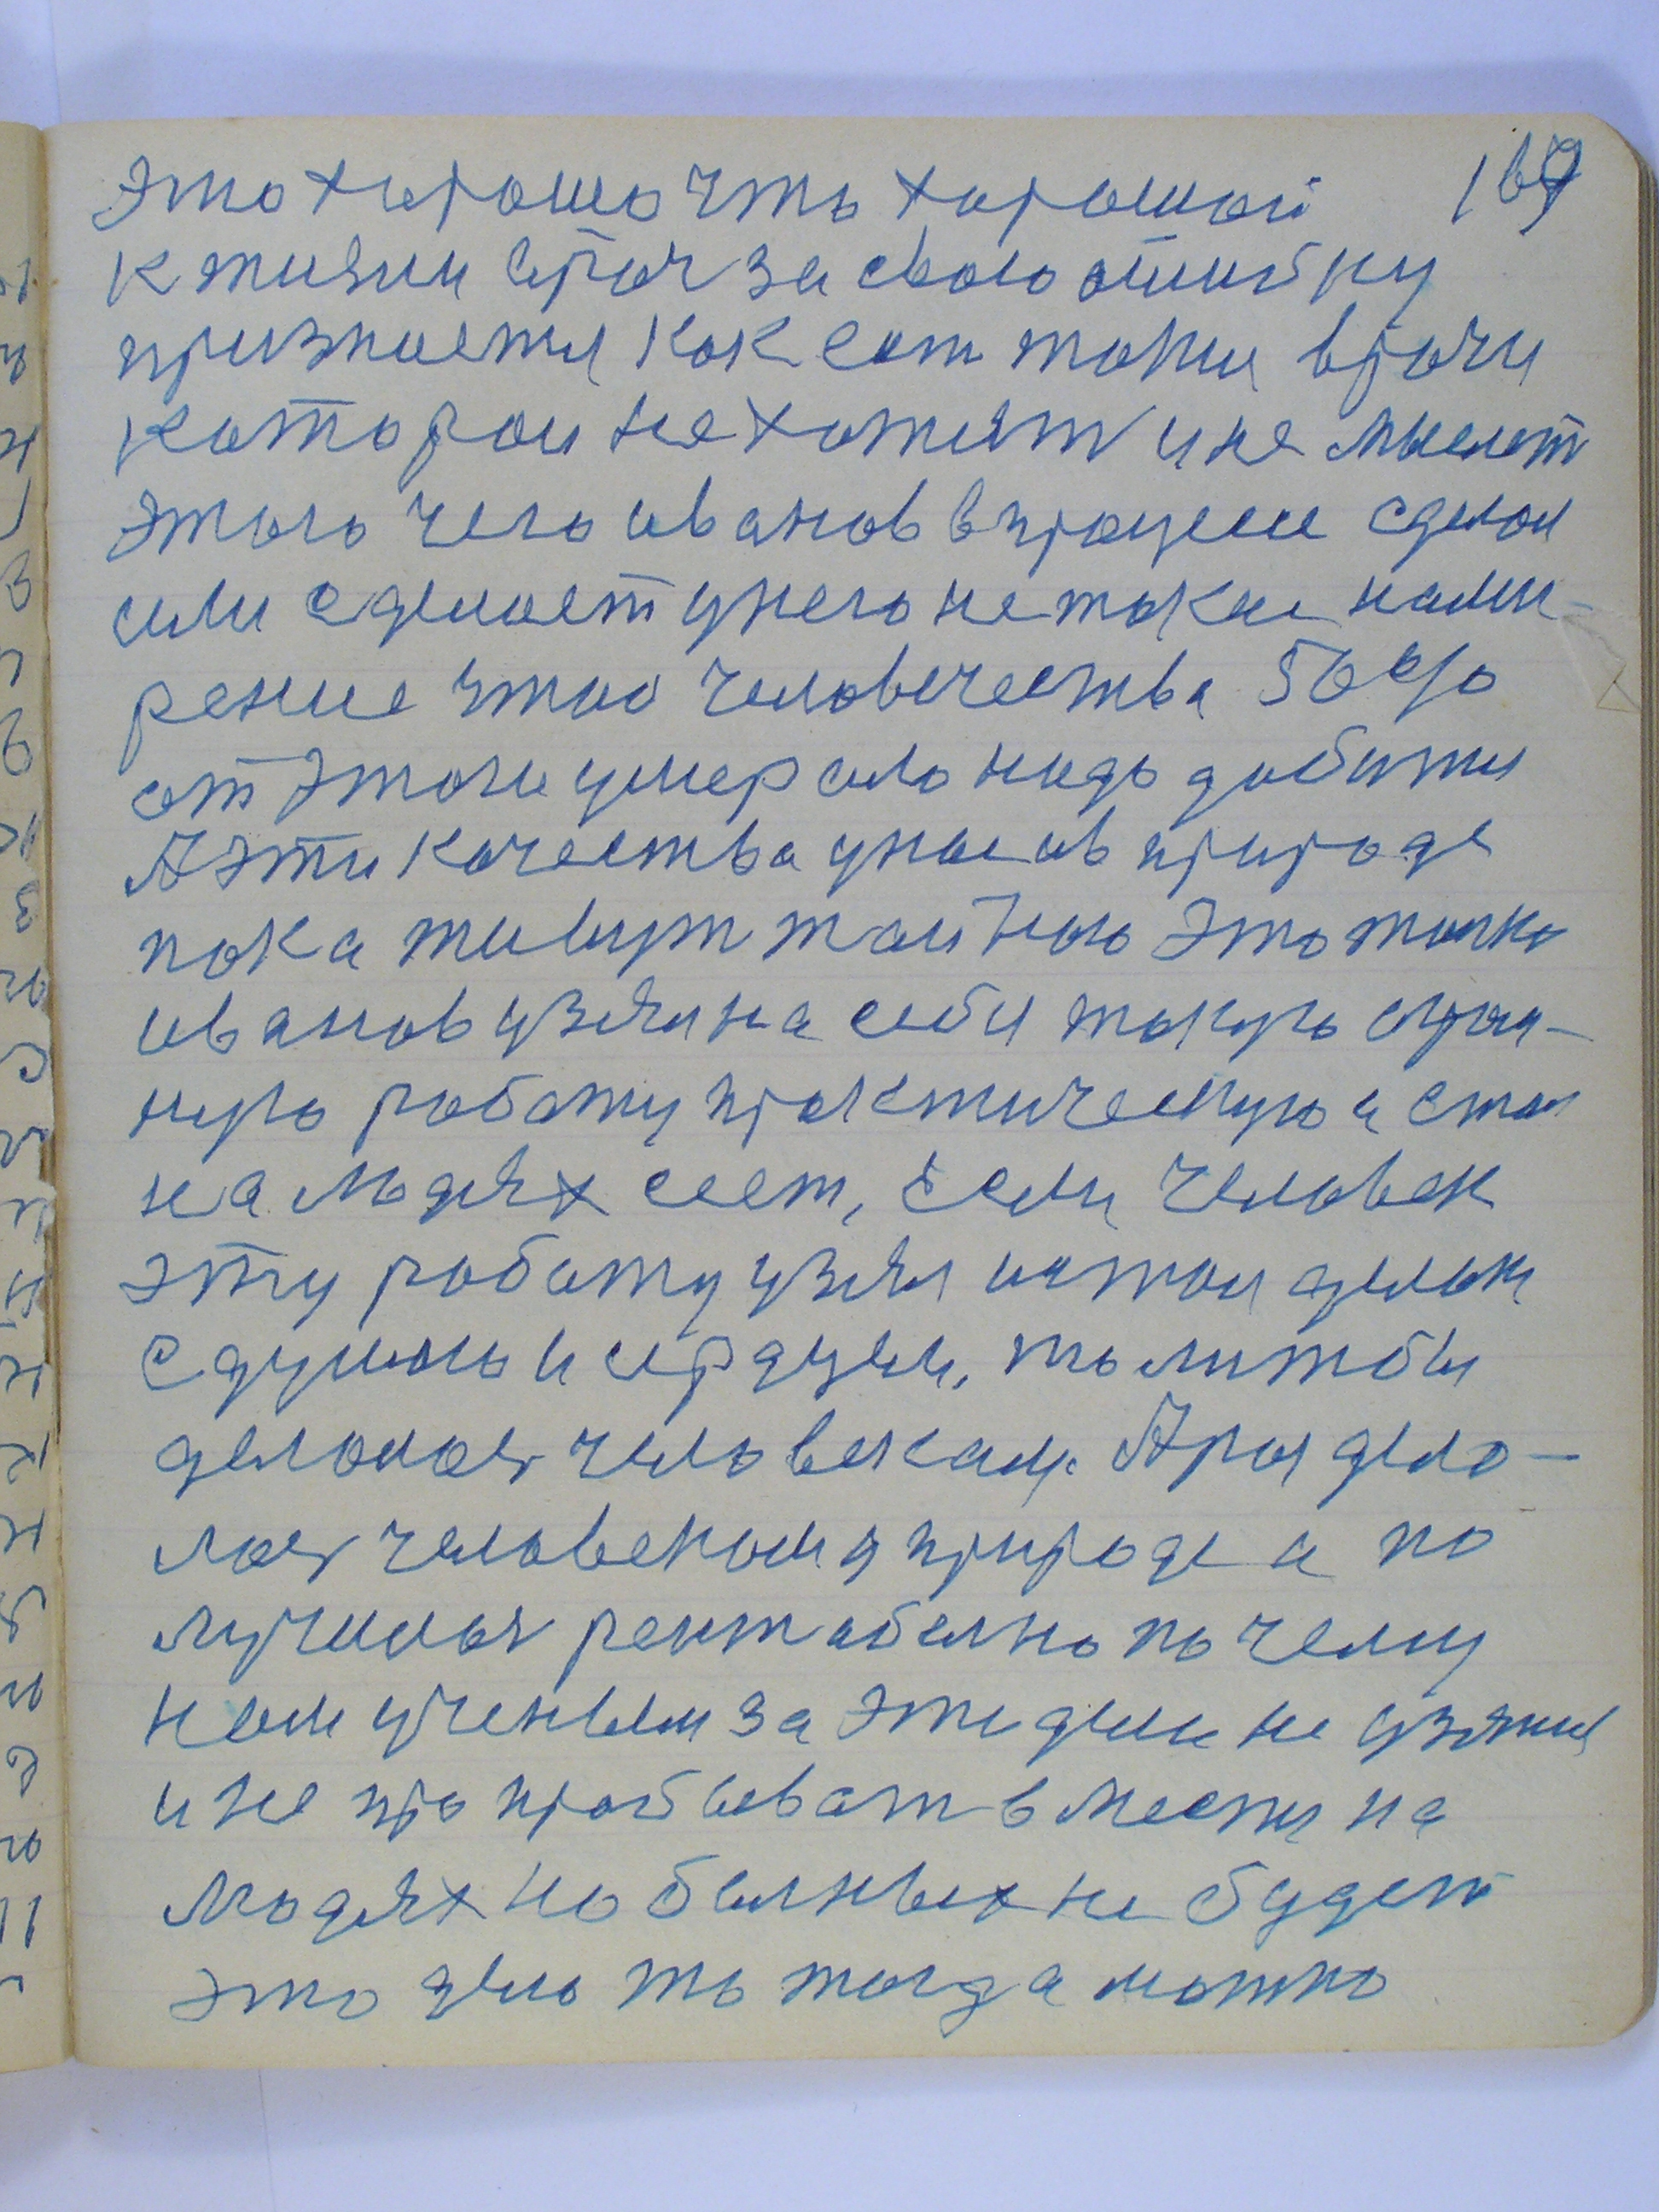 это хорошо что хороший 169
к жизни врач за свою ошибку
признается как есть такие врачи
которои не хотят и не мыслят
этого чего иванов в процессе сделал
или сделает у него не такое наме-
рение что человечества 56%
от этого умерало надо добится
А эти качества у нас в природе
пока живут тайною это только
иванов узял на себя такую
ную работу практическую и стал
на людях сеет, Если человек
эту работу узял и стал делать
с душою и сердцем, то лижбы
делалося человекам. А раз дела-
лося человеком у природе а по
лучилося рентабелно почему
нам ученым за эти дела не узятця
и не пропробыват вместе на
людях но болных не будет
это дело то тогда можно